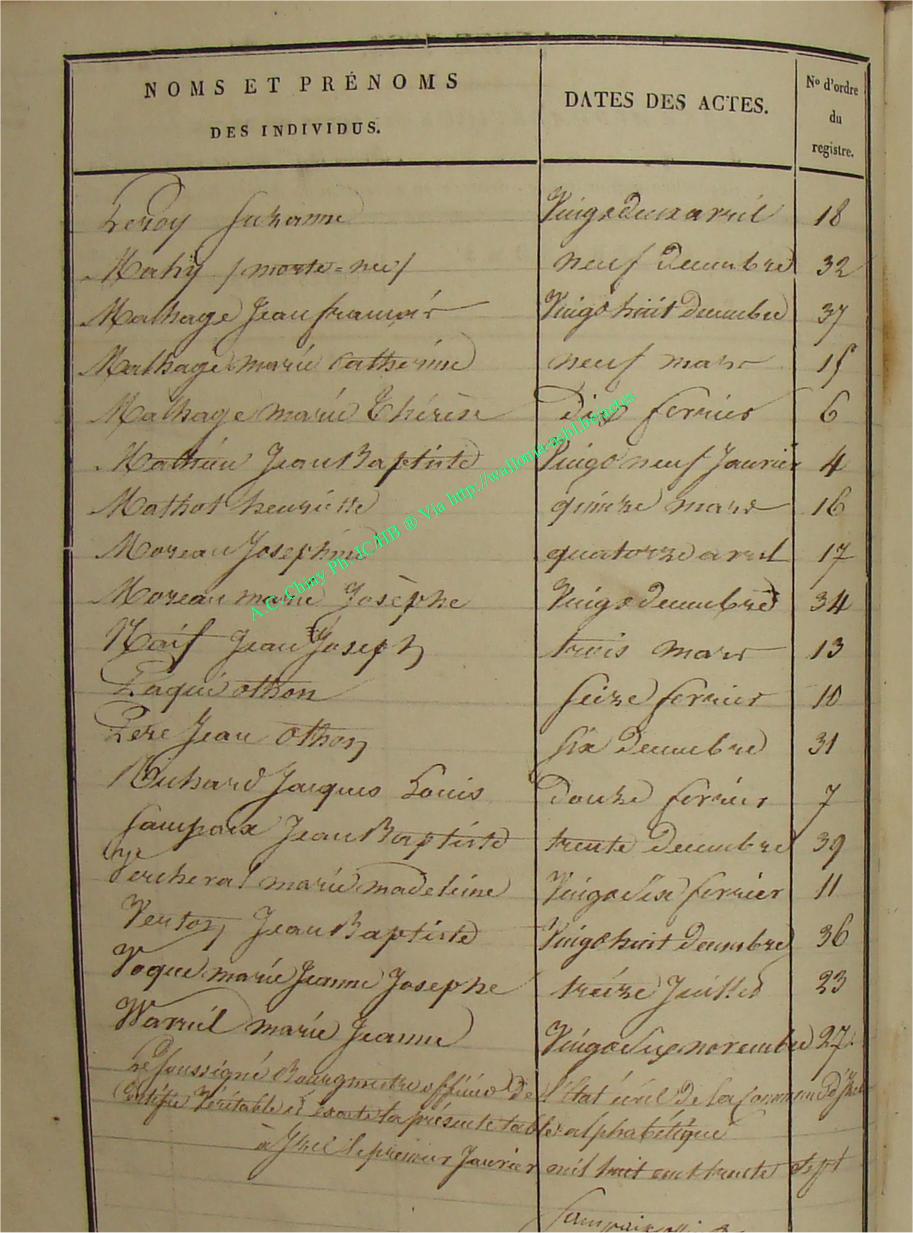 NOMS ET PRÉNOMS
DES INDIVIDUS.
DATES DES ACTES.
Nº d'ordre
du
registre.
Leroy Suzanne Vingt deux avril 18
Mahy / morte-née / neuf decembre 32
Malhage Jean francois Vingt huit decembre 37
Malhage marie Catherine neuf mars 15
Malhage marie Thérèse Dix fevrier 6
Mathieu Jean Baptiste Vingt neuf Janvier 4
Mathot henriette quinze mars 16
Moreau Josephine quatorze avril 17
Moreau marie Josèphe Vingt decembre 34
Naif Jean Joseph trois mars 13
Paqui othon seize fevrier 10
Pere Jean Othon Six decembre 31
Richard Jacques Louis Douze fevrier 7
Sampaix Jean Baptiste trente decembre 39
marie madeleine Vingt Six fevrier 11
Verton Jean Baptiste Vingt huit decembre 36
Voque marie Jeanne Josephe treize Juillet 23
Warnil marie Jeanne Vingt Six novembre 27.
Le soussigné Bourgmestre officier De l'Etat civil De la Commune D'Izel
Certifie Véritable et exacte la présente table alphabétique
à Izel le premier Janvier mil huit cent trente Sept
Sampaix
A.C. Chiny Ph. IC.HB ® Via http://wallonia-asbl.be/actes